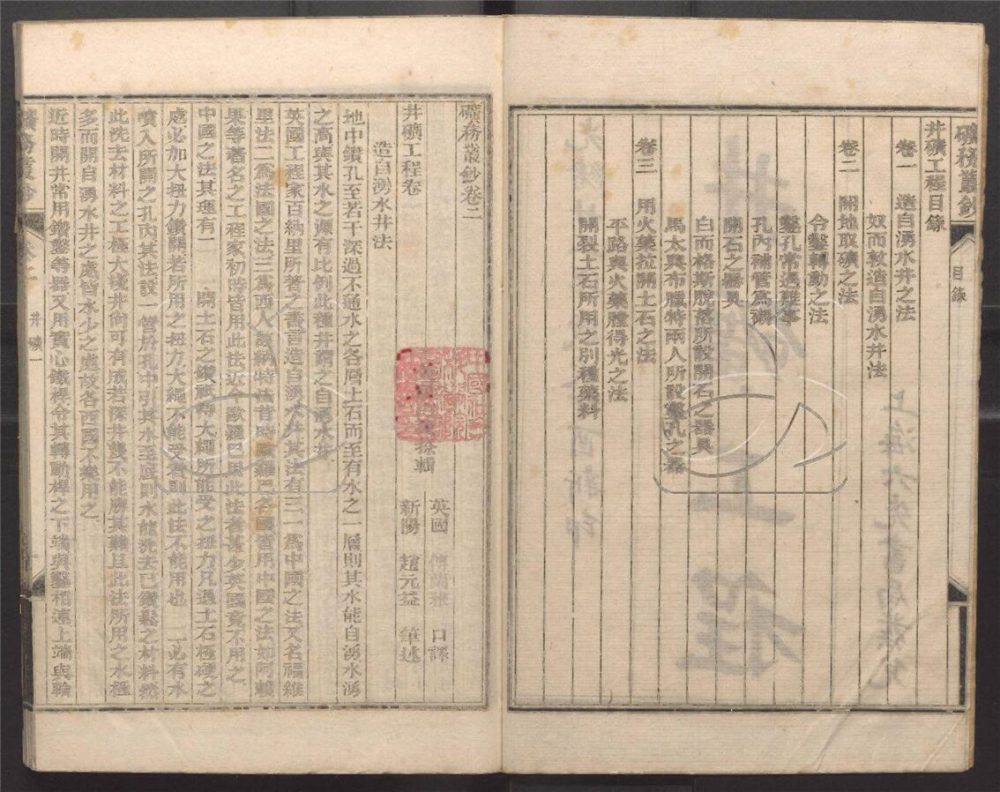 礦務叢鈔
井礦工程目錄
卷一　造自湧水井之法
奴而敦造自湧水井法
卷二　開地取礦之法
令鑿轉動之法
鑿孔常遇難事
孔內補管爲襯
開石之器具
白而格斯脫落所設開石之器具
馬太與布臘特兩人所設鑿孔之器
卷三　用火藥拉開土石之法
平路與火藥膛得光之法
開裂土石所用之別種藥料
目錄
礦務叢鈔卷二
井礦工程卷
英國　傅蘭雅　口譯
新陽　趙元益　筆述
輯
造自湧水井法
地中鑽孔至若干深過不通水之各層土石而至有水之一層則其水能自湧水湧
之高與其水之源有比例此種井謂之自湧水井
英國工程家百納里所著之書言造自湧水井其法有三一爲中國之法又名繩錐
單法二爲法國之法三爲西人設納特法昔時歐羅巴各國皆用中國之法如阿賴
果等著名之工程家初時皆用此法近今歐羅巴用此法者甚少英國竟不用之
中國之法其理有二　開土石之鑽
轉時大繩所能受之扭力凡遇土石極硬之
處必加大扭力鑽開若所用之扭力大繩不能受者則此法不能用也　一必有水
噴入所開之孔內其法設一管於孔中引其水至底則水能洗去已鑽鬆之材料然
此洗去材料之工極大淺井尚可有成若深井雙不能勝其難且此法所用之水極
多而開自湧水井之處皆水少之處故各西國不樂用之
近時開井常用鑽鑿等器又用實心鐵桿令其轉動桿之下端與鑿相連上端與輪
井礦一